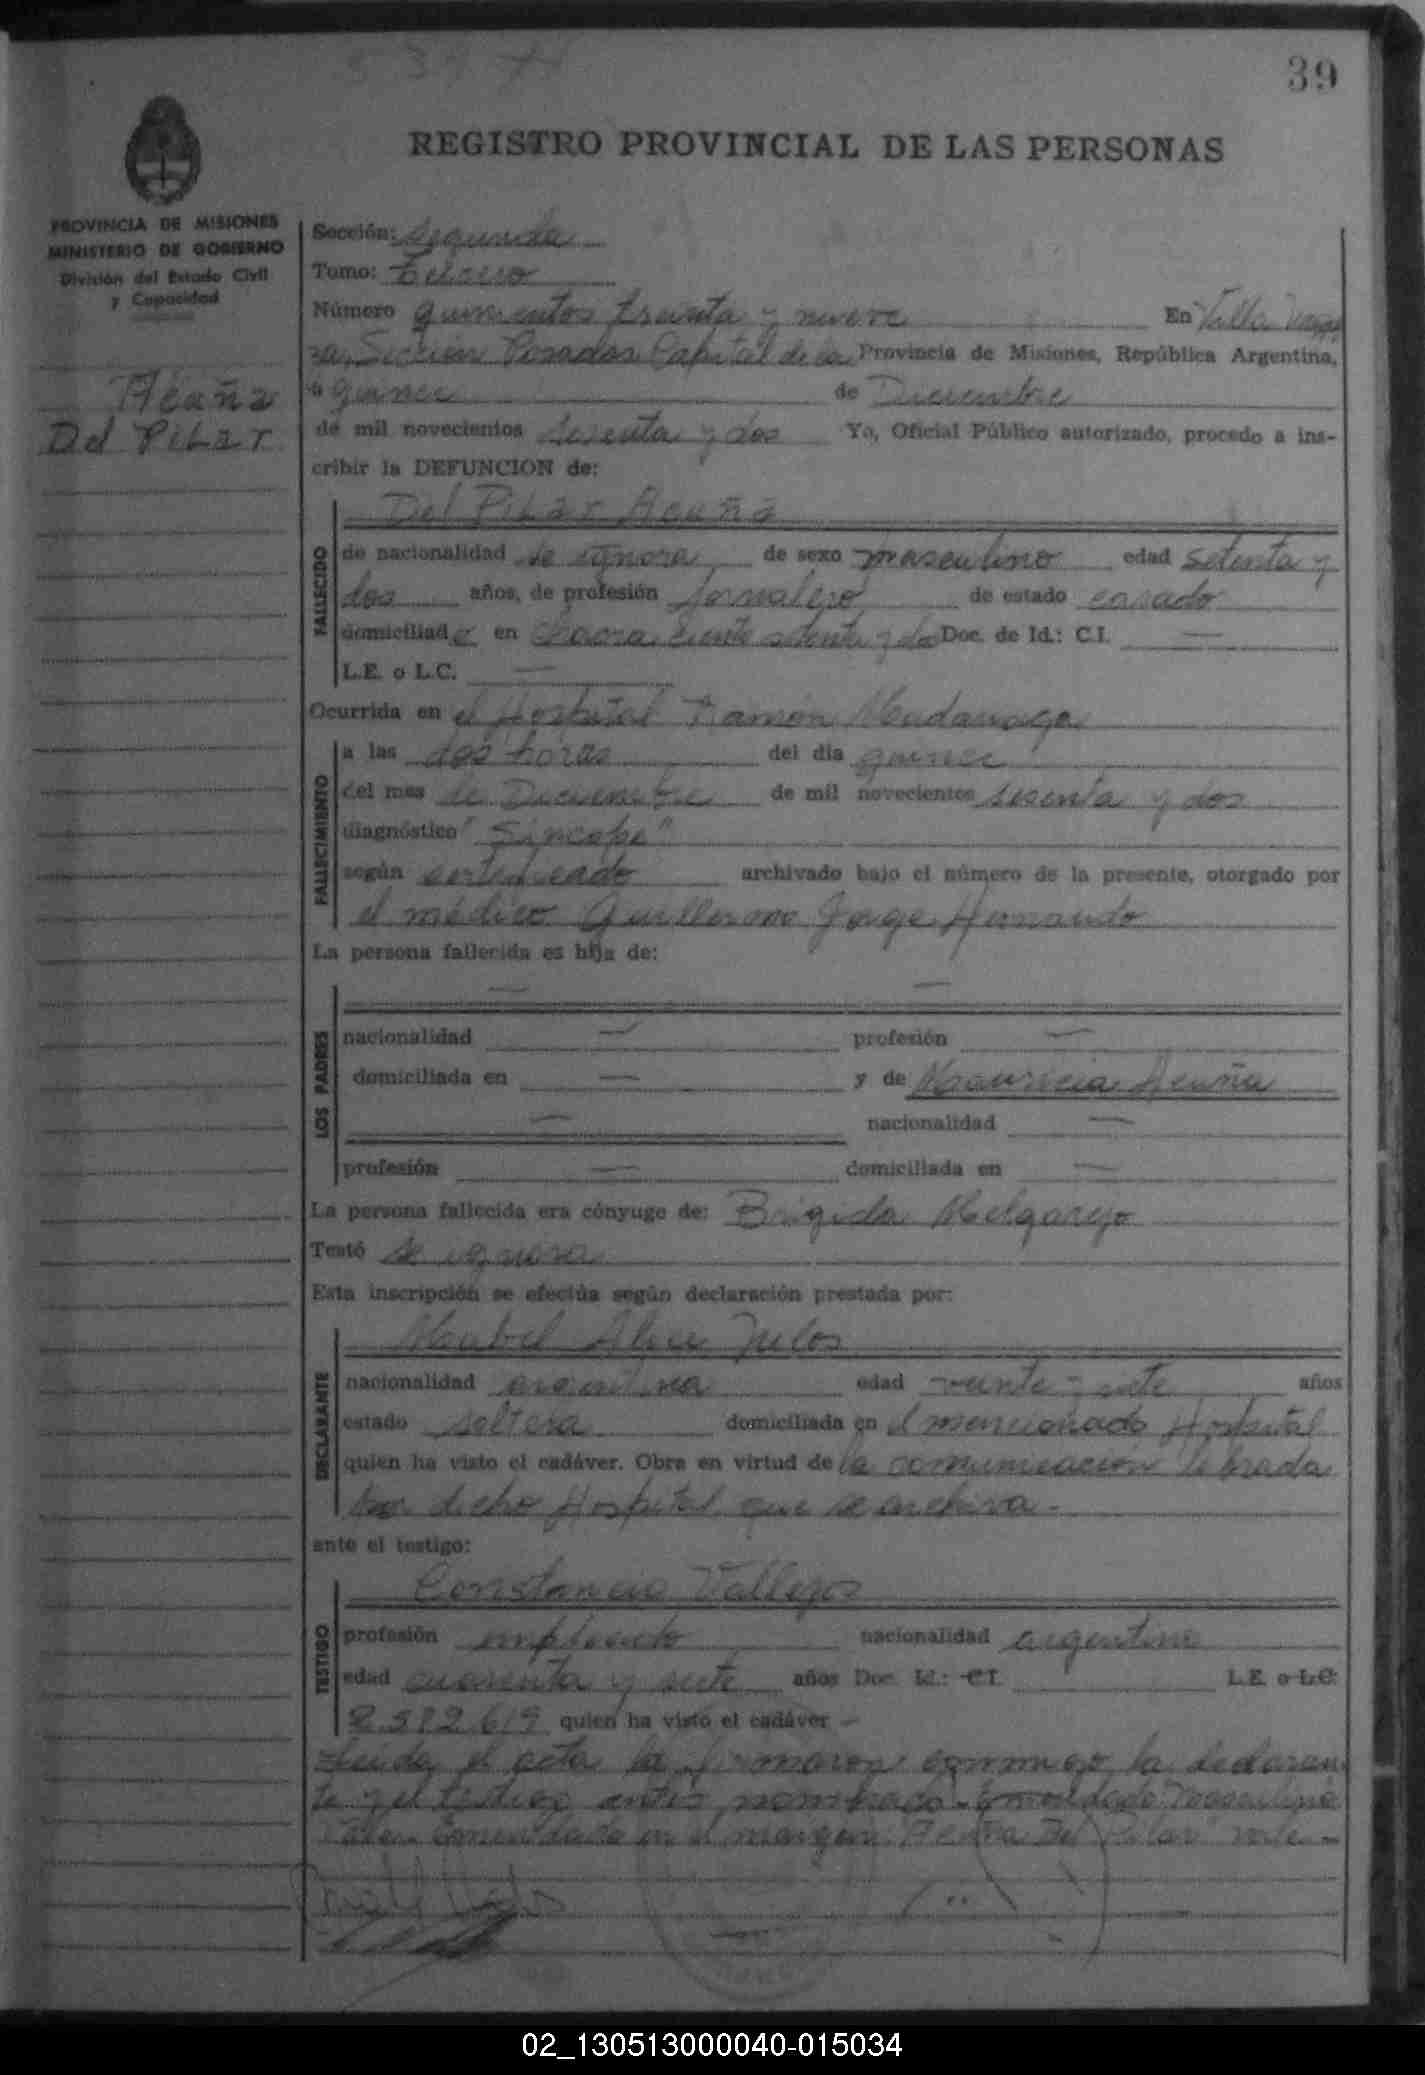 39
REGISTRO PROVINCIAL DE LAS PERSONAS
PROVINCIA DE MISIONES
MINISTERIO DE GOBIERNO
División del Estado Civil
y Capacidad
Acuña
Del Pilar
Sección: Segunda
Tomo: Tercero
Número quinientos treinta y nueve En Villa
Sección Posadas Capital de la Provincia de Misiones, República Argentina,
a quince de Diciembre
de mil novecientos sesenta y dos Yo, Oficial Público autorizado, procedo a ins-
cribir la DEFUNCION de:
Del Pilar Acuña
FALLECIDO
de nacionalidad se ignora de sexo masculino edad setenta y
dos años, de profesión jornalero de estado casado
domiciliado en chacra ciento setenta y dos Doc. de Id.: C.I. —
L.E. o L.C. —
Ocurrida en el Hospital Ramón Madariaga
FALLECIMIENTO
a las dos horas del día quince
del mes de Diciembre de mil novecientos sesenta y dos
diagnóstico "Síncope"
según certificado archivado bajo el número de la presente, otorgado por
el médico Guillermo Jorge Hernando
La persona fallecida es hija de:
— —
LOS PADRES
nacionalidad — profesión —
domiciliada en — y de Mauricia Acuña
— nacionalidad —
profesión — domiciliada en —
La persona fallecida era cónyuge de: Brígida Melgarejo
Testó se ignora
Esta inscripción se efectúa según declaración prestada por:
Mabel Alice
DECLARANTE
nacionalidad argentina edad veinte y siete años
estado soltera domiciliada en el mencionado Hospital
quien ha visto el cadáver. Obra en virtud de la comunicación librada
por dicho Hospital que se archiva.-
ante el testigo:
Constancio Vallejos
TESTIGO
profesión empleado nacionalidad argentino
edad cuarenta y siete años Doc. Id.: C.I. L.E. o L.C.
2.582.619 quien ha visto el cadáver —
Leída el acta la firmaron conmigo la declaran
te y el testigo antes nombrado. Enmendado: "masculino"
Vale. Enmendado en el margen: "Acuña Del Pilar" vale.-
02_130513000040-015034